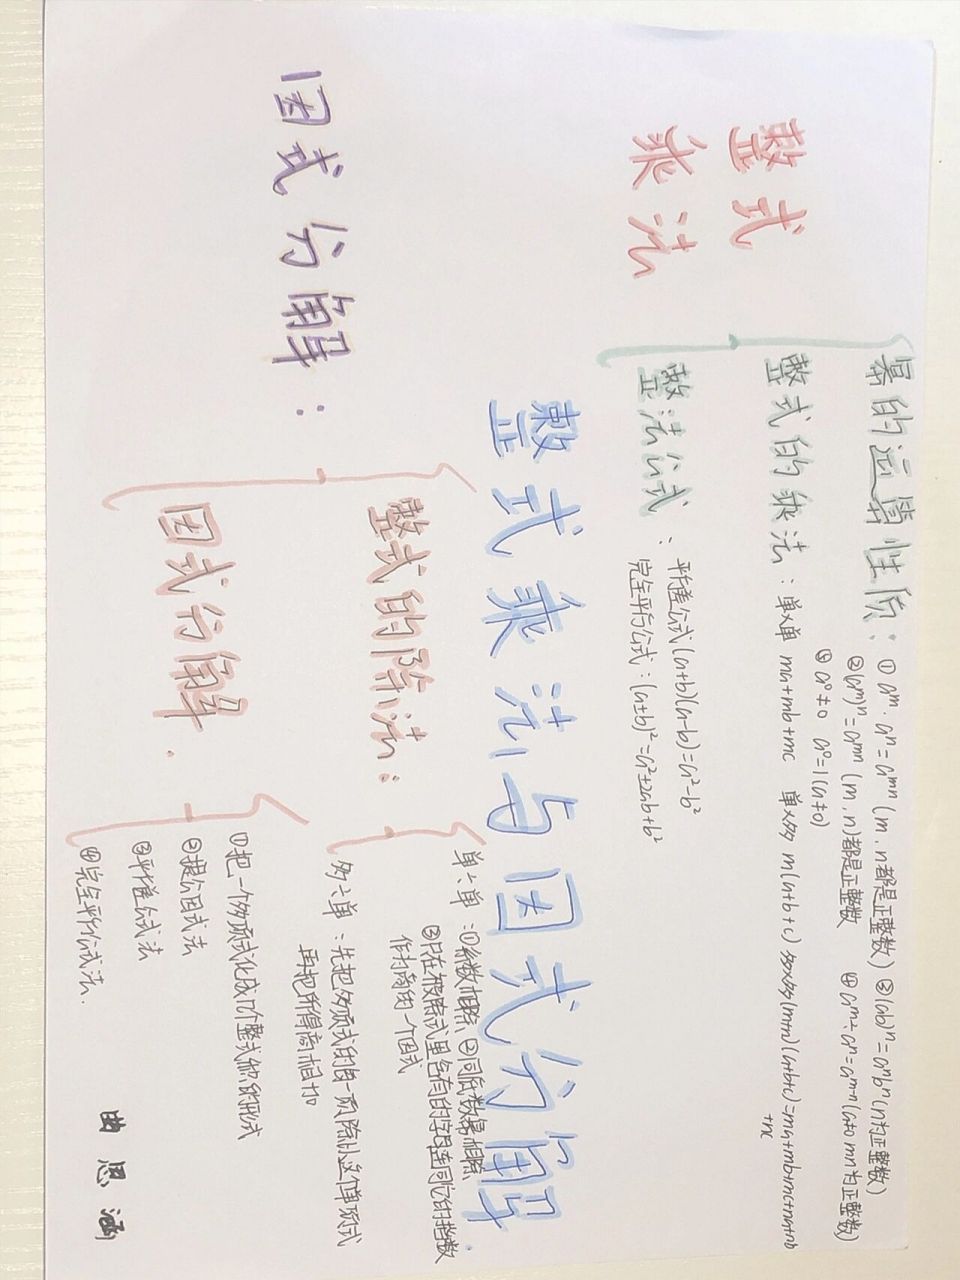 整式乘法与因式分解.
整式
乘法
幂的运算性质:
① aᵐ·aⁿ=aᵐⁿ(m,n都是正整数) ③(ab)ⁿ=aⁿbⁿ(n为正整数)
②(aᵐ)ⁿ=aᵐⁿ(m,n)都是正整数 ④ aᵐ÷aⁿ=aᵐ⁻ⁿ(a≠0 mn为正整数)
a⁰≠0 a⁰=1(a≠0)
整式的乘法: 单×单 ma+mb+mc 单×多 m(a+b+c) 多×多(m+n)(a+b+c)=ma+mb+mc+na+nb
+nc
整法公式: 平方差公式(a+b)(a-b)=a²-b²
完全平方公式:(a±b)²=a²±2ab+b²
因式分解:
整式的除法:
单÷单:①系数相除 ②同底数幂相除
③只在被除式里含有的字母连同它的指数
作为商的一个因式
多÷单:先把多项式的每一项除以这个单项式
再把所得商相加
因式分解.
①把一个多项式化成几个整式积的形式
②提公因式法
③平方差公式法
④完全平方公式法.
曲思涵